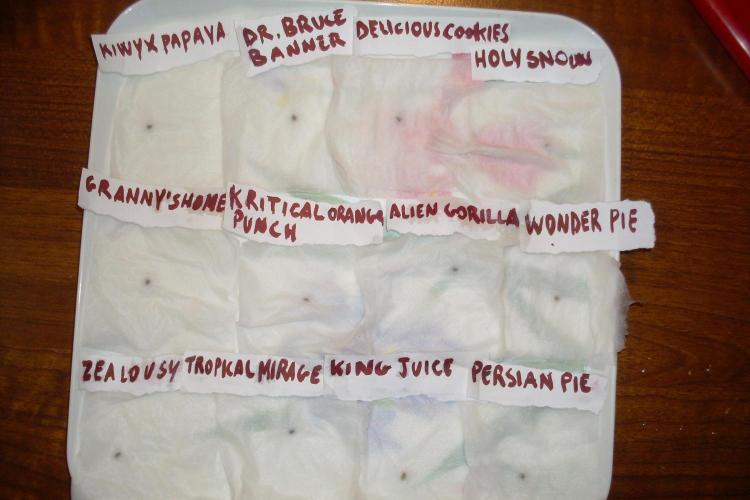 KIWYXPAPAYA
DR. BRUCE
BANNER
DELICIOUS COOKIES
HOLY SNOWN
GRANNY'S HONE
KRITICAL ORANGE
PUNCH
ALIEN GORILLA
WONDER PIE
ZEALOUSY
TROPKAL MIRAGE
KING JUICE
PERSIAN PIE